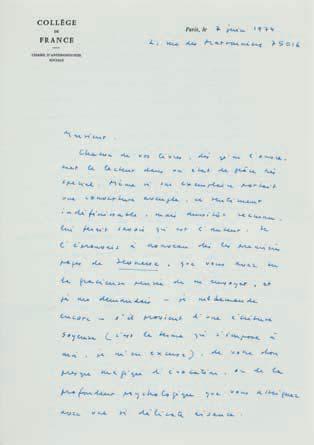 COLLÈGE
DE
FRANCE
CHAIRE D'ANTHROPOLOGIE
SOCIALE
Paris, le 7 juin 1974
2, rue des Marronniers 75016
Monsieur,
Chacun de vos livres, dès qu'on l'ouvre,
met le lecteur dans un état de grâce très
spécial. Même si son exemplaire portait
une couverture aveugle, ce sentiment
indéfinissable, mais aussitôt reconnu,
lui ferait savoir qui est l'auteur. Je
l'éprouvais à nouveau dès les premières
pages de Jeunesse, que vous avez eu
la gracieuse pensée de m'envoyer, et
je me demandais – je me demande
encore – s'il provient d'une écriture
soyeuse (c'est le terme qui s'impose à
moi, je m'en excuse), de votre don
presque magique d'évocation, ou de la
profondeur psychologique que vous atteignez
avec une si délicate aisance.